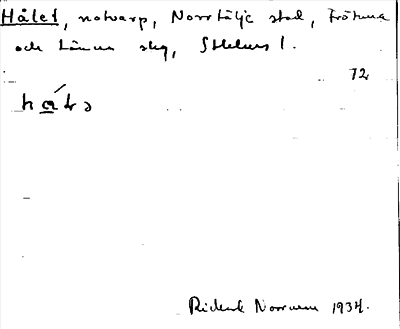 Hålet, notvarp, Norrtälje stad, Frötuna
och Länna skg, Sthlms l.
72
Rickard Norrman 1934.